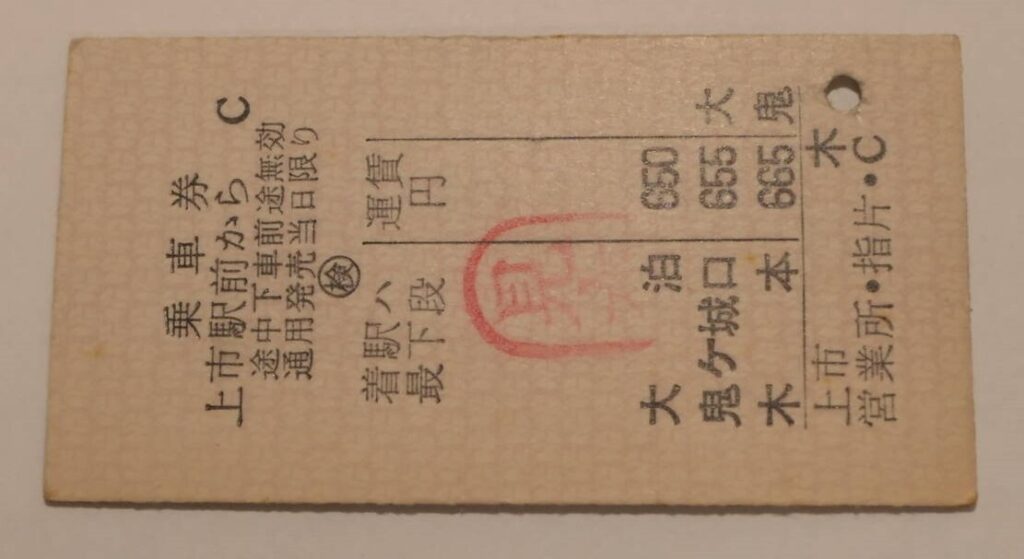 乗車券
上市駅前から C
途中下車前途無効
通用発売当日限り
検
着駅ハ 運賃
最下段 円
見
大泊 650 大
鬼ケ城口 655
木本 665 鬼
上市 木
営業所・指片・C